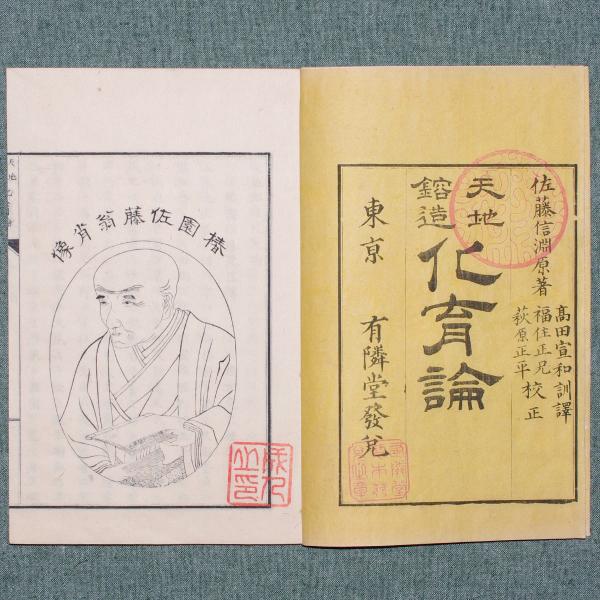 佐藤信淵原著
高田宣和訓譯
福住正兄
萩原正平 校正
天地
鎔造
化育論
東京 有隣堂發兌
椿園佐藤翁肖像